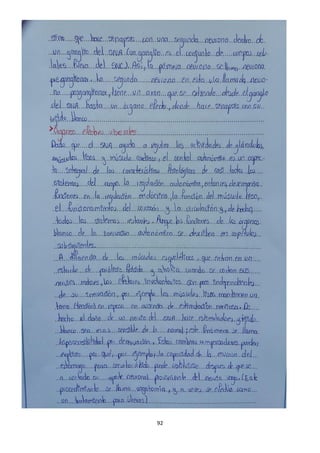 sino que hace sinapsis con una segunda neurona dentro de
un ganglio del SNA (un ganglio es el conjunto de cuerpos celu-
lares fuera del SNC). Así, la primera neurona se llama neurona
preganglionar. La segunda neurona en esta vía llamada neuro-
na posganglionar, tiene un axón que se extiende desde el ganglio
del SNA hasta un órgano efector, donde hace sinapsis con su
tejido blanco.
Organos efectores viscerales
Dado que el SNA ayuda a regular las actividades de glándulas,
músculos lisos y músculo cardiaco, el control autonómico es un aspec-
to integral de las características fisiológicas de casi todos los
sistemas del cuerpo. la regulación autonómica, entonces, desempeña
funciones en la regulación endocrina, la función del músculo liso,
el funcionamiento del corazón y la circulación y, de hecho
todos los sistemas Aunque las funciones de los órganos
blanco de la inervación autonómica se describen en capítulos
subsiguientes.
A diferencia de los músculos esqueléticos, que entran en un
estado de parálisis flácida y atrofia cuando se cortan sus
nervios motores, los efectores involuntarios son poco independientes
de su inervación, por ejemplo los músculos lisos mantienen un
tono en reposo en ausencia de estimulación nerviosa. De
hecho el daño de un nervio del SNA hace que su tejido
blanco sea más sensible de lo normal; este fenómeno se llama
hipersensibilidad por denervación. Estos cambios compensadores pueden
explicar por qué, por ejemplo, la capacidad de la mucosa del
estómago para secretar ácido puede restituirse después de que se
a cortado su aporte neuronal proveniente del nervio vago. (Este
procedimiento se llama vagotomía, y a veces se efectúa como
un tratamiento para úlceras)
92